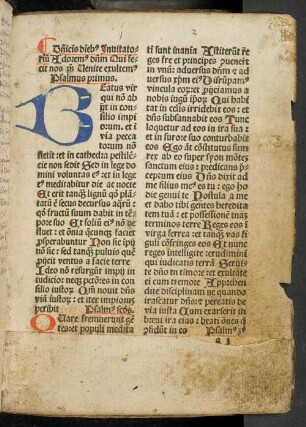 Dñicis dieb⁹ Inuitato
riũ Adorem⁹ dñm Qui fe
cit nos p̃s Venite exultem⁹
Psalmus primus.
Beatus vir
qui nõ ab
ijt in con
silio impi
orum. et i
via pecca
torum nõ
stetit et in cathedra pestilẽ
cie non sedit Sed in lege do
mini voluntas e⁹: et in lege
e⁹ meditabitur die ac nocte
Et erit tanq̃ lignũ qd plan
tatũ ẽ secus decursus aq̃rꝝ:
qd fructũ suum dabit in tẽ
pore suo Et foliũ e⁹ nõ de
fluet: et oĩa quecũq̃ faciet
ꝓsperabuntur Non sic ĩpij
nõ sic: sed tanq̃ puluis quẽ
ꝓijcit ventus a facie terre
Ideo nõ resurgũt impij in
iudicio: neq̃ pctõres in con
silio iustoꝝ Qm̃ nouit dñs
viã iustoꝝ: et iter impiorum
peribit Psalm⁹ scds.
Quare fremuerunt gẽ
tes: et populi medita
ti sunt inania Astiterũt re
ges fre et principes ꝯuenerũt
in vnũ: aduersus dñm et ad
uersus xp̃m ei⁹ Dirũpam⁹
vincula eoꝝ: et ꝓijciamus a
nobis iugũ ip̃oꝝ Qui habi
tat in celis irridebit eos: et
dñs subsannabit eos Tunc
loquetur ad eos in ira sua:
et in furore suo conturbabit
eos Ego aũt cõstitutus sum
rex ab eo super syon mõtẽ
sanctum eius: predicans p̃
ceptum eius Dñs dixit ad
me filius meus es tu: ego ho
die genui te Postula a me
et dabo tibi gentes heredita
tem tuã: et possessionẽ tuã
terminos terre Reges eos i
virga ferrea: et tanq̃ vas fi
guli cõfringes eos Et nunc
reges intelligite: erudimini
qui iudicatis terrã Seruite
dño in timore: et exultate
ei cum tremore Apprehen
dite disciplinam: ne quando
irascatur dñs: et pereatis de
via iusta Cum exarserit in
breui ira eius: beati oẽs q̃
ꝯfidũt in eo Psalm⁹
a 1